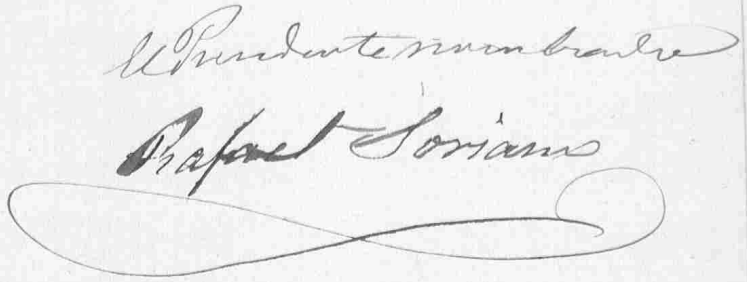 El Presidente nombrado
Rafael Soriano